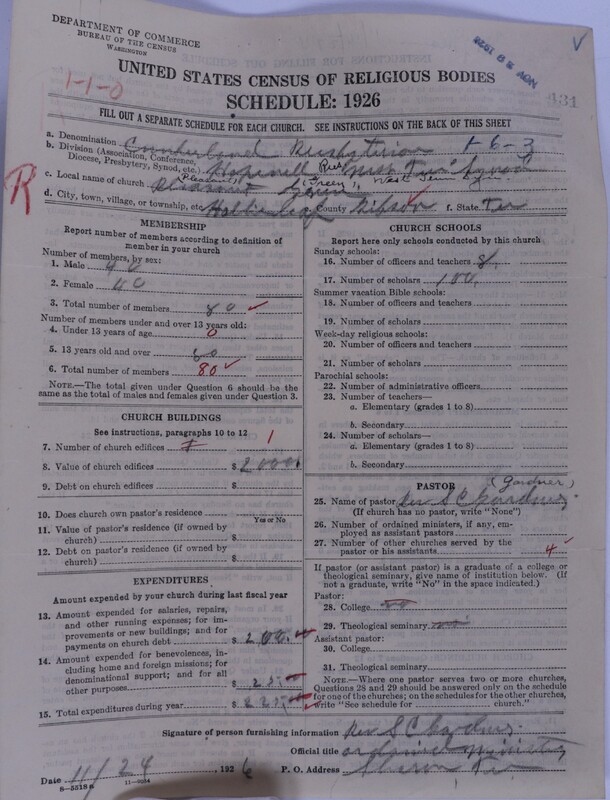 DEPARTMENT OF COMMERCE
BUREAU OF THE CENSUS
WASHINGTON
NOV 29 1926
331
1-1-0
UNITED STATES CENSUS OF RELIGIOUS BODIES
SCHEDULE: 1926
FILL OUT A SEPARATE SCHEDULE FOR EACH CHURCH. SEE INSTRUCTIONS ON THE BACK OF THIS SHEET
a. Denomination Cumberland Presbyterian 1-6-3
b. Division (Association, Conference, Diocese, Presbytery, Synod, etc.) Hopewell Pres West Ten Synod
c. Local name of church Pleasant Green
R
d. City, town, village, or township, etc. e. County Gibson f. State Ten
MEMBERSHIP
Report number of members according to definition of
member in your church
Number of members, by sex:
1. Male 40
2. Female 40
3. Total number of members 80
Number of members under and over 13 years old:
4. Under 13 years of age 0
5. 13 years old and over 80
6. Total number of members 80
NOTE.—The total given under Question 6 should be the
same as the total of males and females given under Question 3.
CHURCH BUILDINGS
See instructions, paragraphs 10 to 12
7. Number of church edifices 1 1
8. Value of church edifices $ 2000.
9. Debt on church edifices $
10. Does church own pastor's residence
Yes or No
11. Value of pastor's residence (if owned by
church) $
12. Debt on pastor's residence (if owned by
church) $
EXPENDITURES
Amount expended by your church during last fiscal year
13. Amount expended for salaries, repairs,
and other running expenses; for im-
provements or new buildings; and for
payments on church debt $ 200.
14. Amount expended for benevolences, in-
cluding home and foreign missions; for
denominational support; and for all
other purposes $ 25
15. Total expenditures during year $ 225
CHURCH SCHOOLS
Report here only schools conducted by this church
Sunday schools:
16. Number of officers and teachers 8
17. Number of scholars 100
Summer vacation Bible schools:
18. Number of officers and teachers
19. Number of scholars
Week-day religious schools:
20. Number of officers and teachers
21. Number of scholars
Parochial schools:
22. Number of administrative officers
23. Number of teachers—
a. Elementary (grades 1 to 8)
b. Secondary
24. Number of scholars—
a. Elementary (grades 1 to 8)
b. Secondary
PASTOR
(Gardner)
25. Name of pastor Rev S C Gardner
(If church has no pastor, write "None")
26. Number of ordained ministers, if any, em-
ployed as assistant pastors
27. Number of other churches served by the
pastor or his assistants 4
If pastor (or assistant pastor) is a graduate of a college or
theological seminary, give name of institution below. (If
not a graduate, write "No" in the space indicated.)
Pastor:
28. College no
29. Theological seminary no
Assistant pastor:
30. College
31. Theological seminary
NOTE.—Where one pastor serves two or more churches,
Questions 28 and 29 should be answered only on the schedule
for one of the churches; on the schedules for the other churches,
write "See schedule for church."
Signature of person furnishing information Rev S C Gardner
Official title ordained Minister
Date 11/24, 1926 P. O. Address Sharon Ten
8-5518a 11-9034